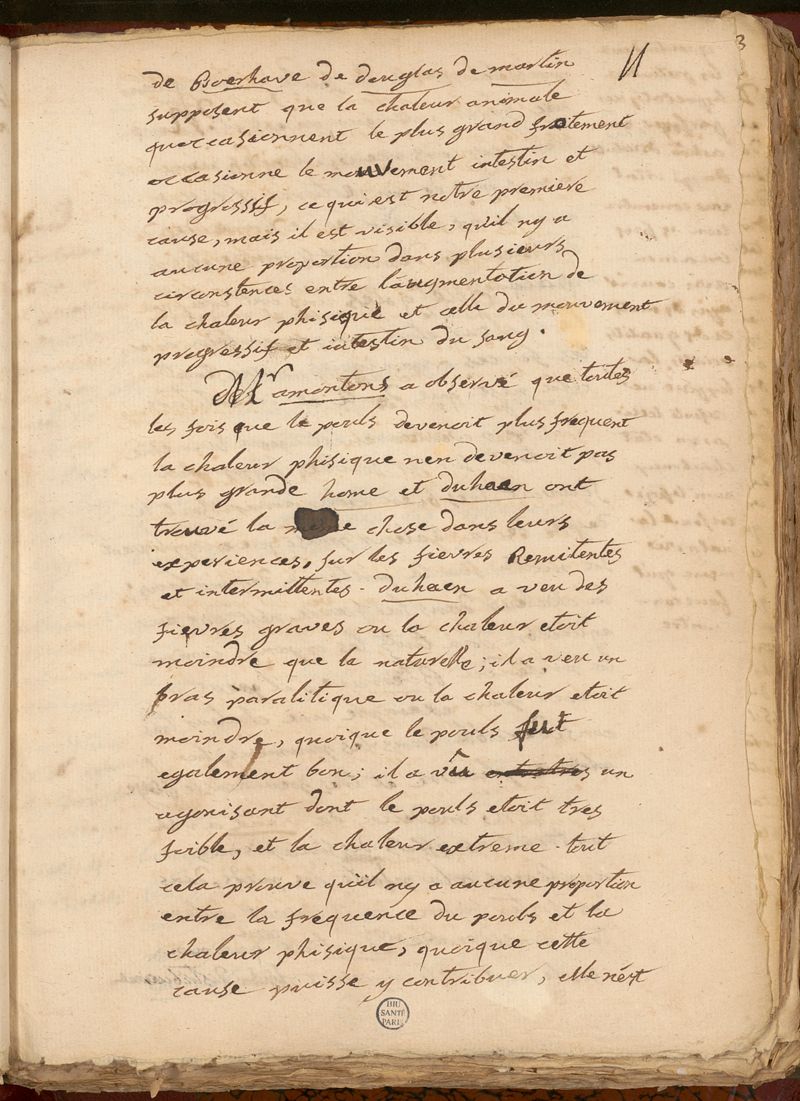 3
11
de Boerhave de douglas de martin
supposent que la chaleur animale
qu'occasionnent le plus grand frotement
occasionne le mouvement intestin et
progressif, ce qui est notre premiere
cause, mais il est visible, qu'il ny a
aucune proportion dans plusieurs
circonstences entre l'augmentation de
la chaleur phisique et celle du mouvement
progressif et intestin du sang.
Mr amontons a observé que toutes
les fois que le pouls devenoit plus frequent
la chaleur phisique nen devenoit pas
plus grande home et duhaen ont
trouvé la même chose dans leurs
experiences, sur les fievres Remitentes
et intermittentes. duhaen a veu des
fievres graves ou la chaleur etoit
moindre que la naturelle; il a veu un
bras paralitique ou la chaleur etoit
moindre, quoique le pouls fut
egalement bon; il a vû un
agonisant dont le pouls etoit tres
foible, et la chaleur extreme. tout
cela prouve qu'il ny a aucune proportion
entre la frequence du pouls et la
chaleur phisique, quoique cette
cause puisse y contribuer, elle n'est
BIU
SANTÉ
PARIS